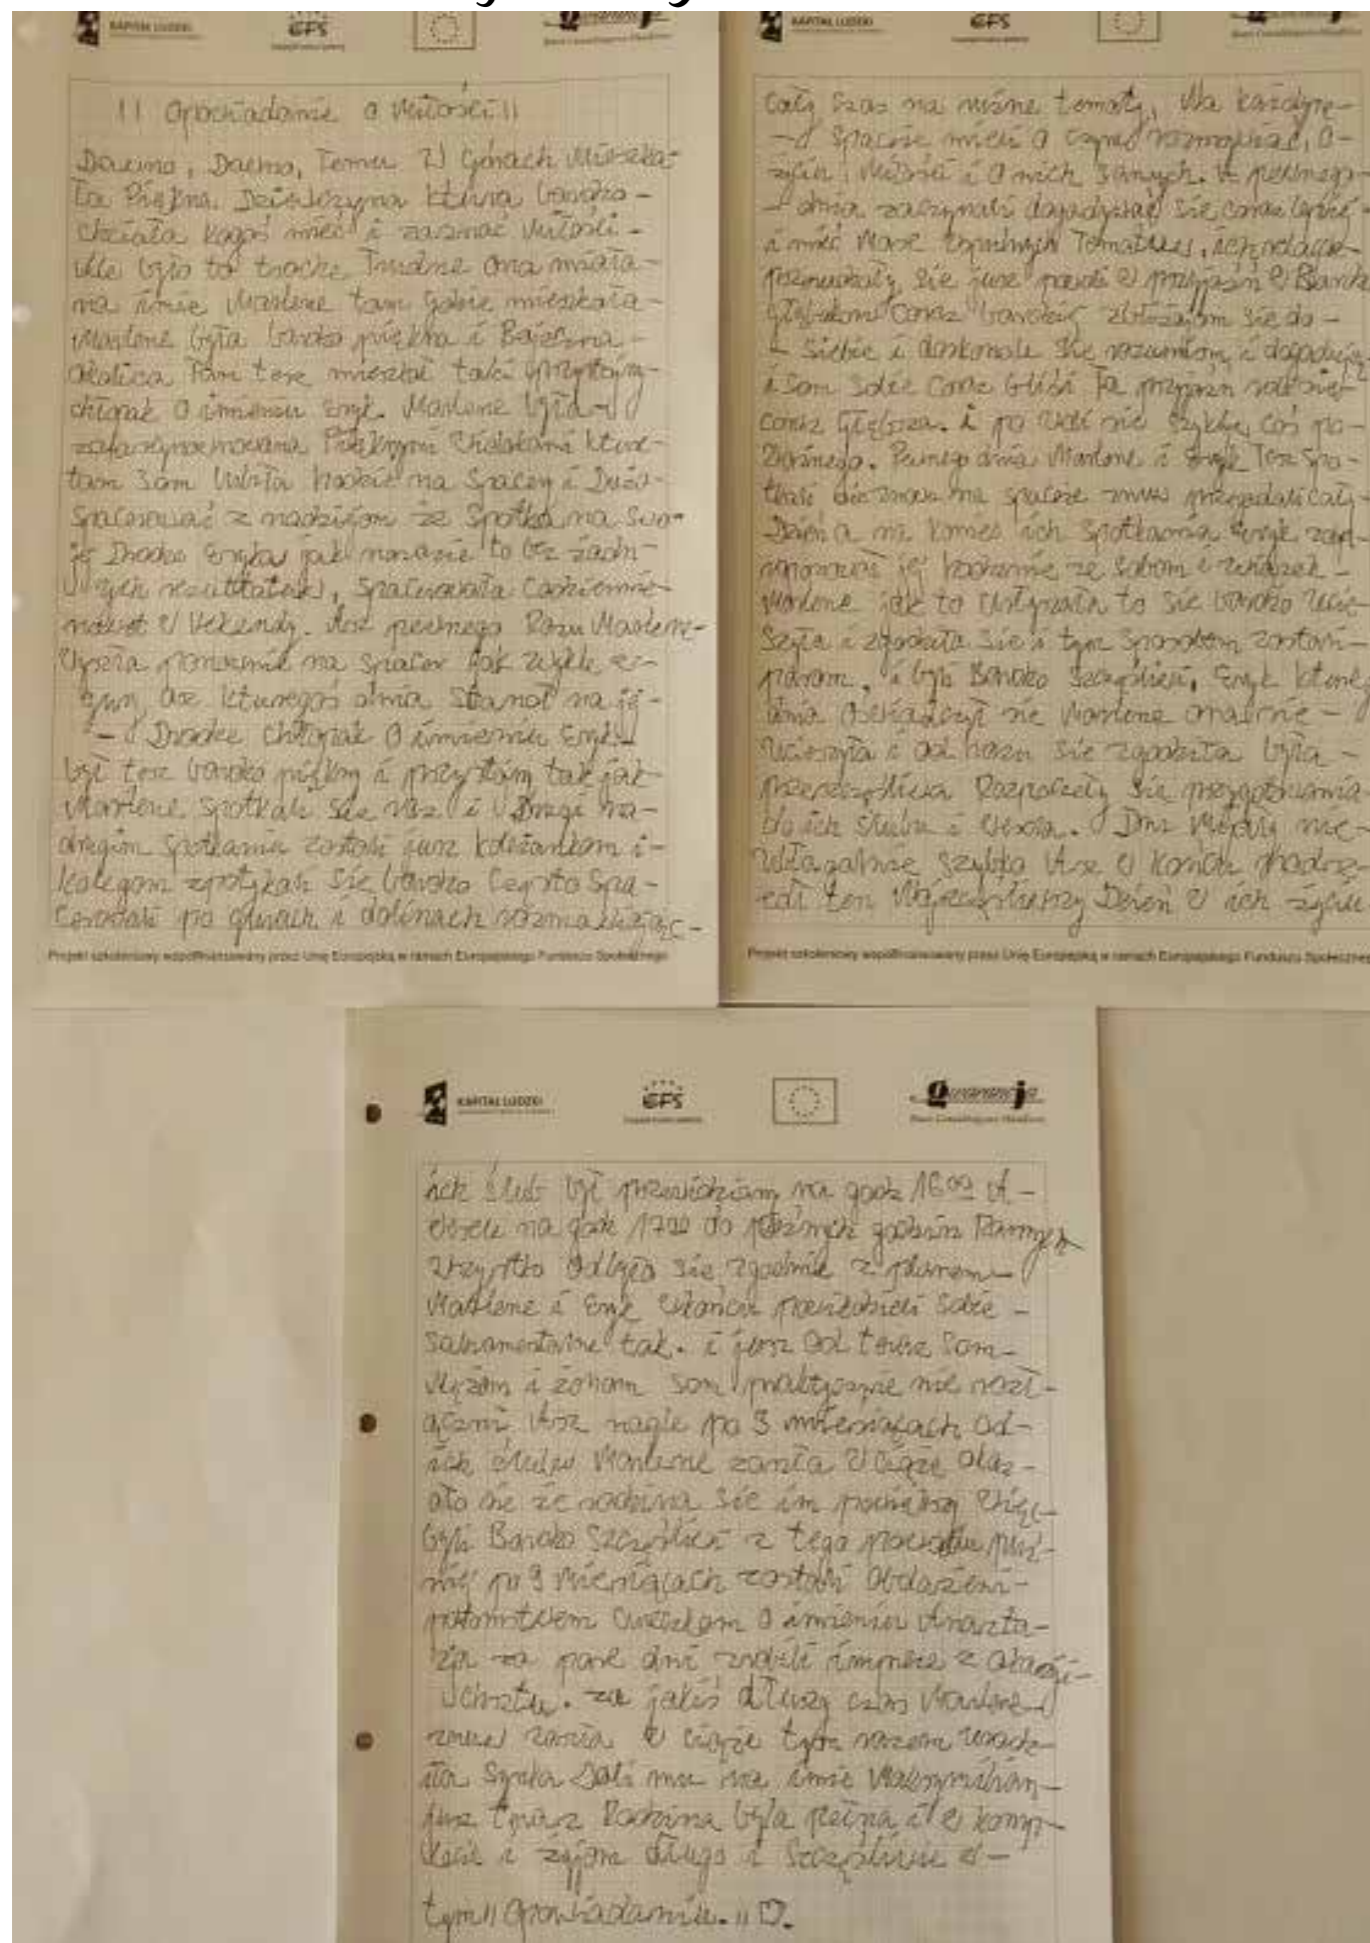 KAPITAŁ LUDZKI
EFS
!! Opowiadanie o Miłości !!
Dawno, Dawno, Temu W Górach Mieszka-
ła Piękna Dziewczyna ktura bardzo-
chciała kogoś mieć i zaznać Miłości-
Ale było to troche Trudne ona miała-
na imie Marlene tam gdzie mieszkała-
Marlene była bardzo piękna i Bajeczna-
Okolica Tam tesz mieszkał taki przystojny-
chłopak O imieniu Eryk. Marlene była-
zafascynowana Pięknymi Widokami kture-
tam Som Wyszła na Spacery i Dużo-
Spacerować z nadzijom że Spotka na Swo-
je Drodze Eryka jak narazie to bez żadn-
ych rezultatów, Spacerowała Codziennie-
nawet W Wekendy. Asz pewnego Razu Marlene-
Wyszła ponownie na spacer jak zwykle
asz kturegoś dnia Stanoł na jej-
- Drodze chłopak O imieniu Eryk-
był tesz bardzo piękny i przystojny tak jak-
Marlene spotkali sie raz i Drugi na-
drugim spotkaniu zostali jusz koleżankom i-
kolegom spotykali Sie bardzo Często Spa-
cerowali po górach i dolinach rozmawiając-
Projekt szkoleniowy współfinansowany przez Unię Europejską w ramach Europejskiego Funduszu Społecznego
cały Czas na rużne tematy, Na każdym-
- Spacerze mieli O czym rozmawiać, O-
życiu, Miłości i O nich Samych. W pewnego-
- dnia zaczynali dogadywać Sie coraz lepiej-
i mieć Mase Tematów, ich relacje-
Sie jusz powoli W przyjaźń W
coraz bardziej zbliżajom Sie do-
- Siebie i doskonale Sie rozumiom i dogadują
i Som Sobie Coraz bliżsi Ta przyjaźń
coraz Głębsza. i po woli coś po-
Ważnego. Pewnego dnia Marlene i Eryk Tesz Spo-
tkali sie znowu na spacerze znuw przegadali cały
Dzień a na koniec ich Spotkania Eryk zap-
roponował jej chodzenie ze Sobom i związek-
Marlene jak to Usłyszała to Sie bardzo Ucie-
Szyła i zgodziła Sie i tym Sposobem zostali-
parom, i byli Bardzo Szczęśliwi, Eryk
dnia Oświadczył sie Marlene -
Ucieszyła i od razu Sie zgodziła była-
przeszczęśliwa Rozpoczeły Sie przygotowania-
do ich ślubu i Wesela. Dni Mijały nie-
Szybko Asz W końcu nadsz-
edł ten Najszczęśliwszy Dzień W ich życiu
Projekt szkoleniowy współfinansowany przez Unię Europejską w ramach Europejskiego Funduszu Społecznego
KAPITAŁ LUDZKI
EFS
ich ślub był przewidziany na godz 16 00 A-
Wesele na godz 17 00 do puźnych godzin Rannych
Wszystko Odbyło Sie zgodnie z planem-
Marlene i Eryk Wkońcu powiedzieli Sobie-
Sakramentalne tak. i jusz Od teraz Som-
Mężem i żonom Som praktycznie nie rozł-
ączni Asz nagle po 3 miesiącach od-
ich ślubu Marlene zaszła W Ciąże Okaz-
ało sie że rodzina Sie im powiększy Więc-
byli Bardzo Szczęśliwi z tego powodu puź-
niej po 9 Miesiącach zostali Obdażeni-
potomstwem Cureczkom O imieniu Anasta-
zja za pare dni zrobili impreze z okazji-
Chrztu. za jakiś dłuszy czas Marlene-
znuw zaszła W ciąże tym razem urodz-
iła Synka Dali mu na imie Maksymilian-
jusz teraz Rodzina była pełna i W komp-
lecie i żyjom długo i Szczęśliwie W-
tym !! Opowiadaniu. !! ♡.